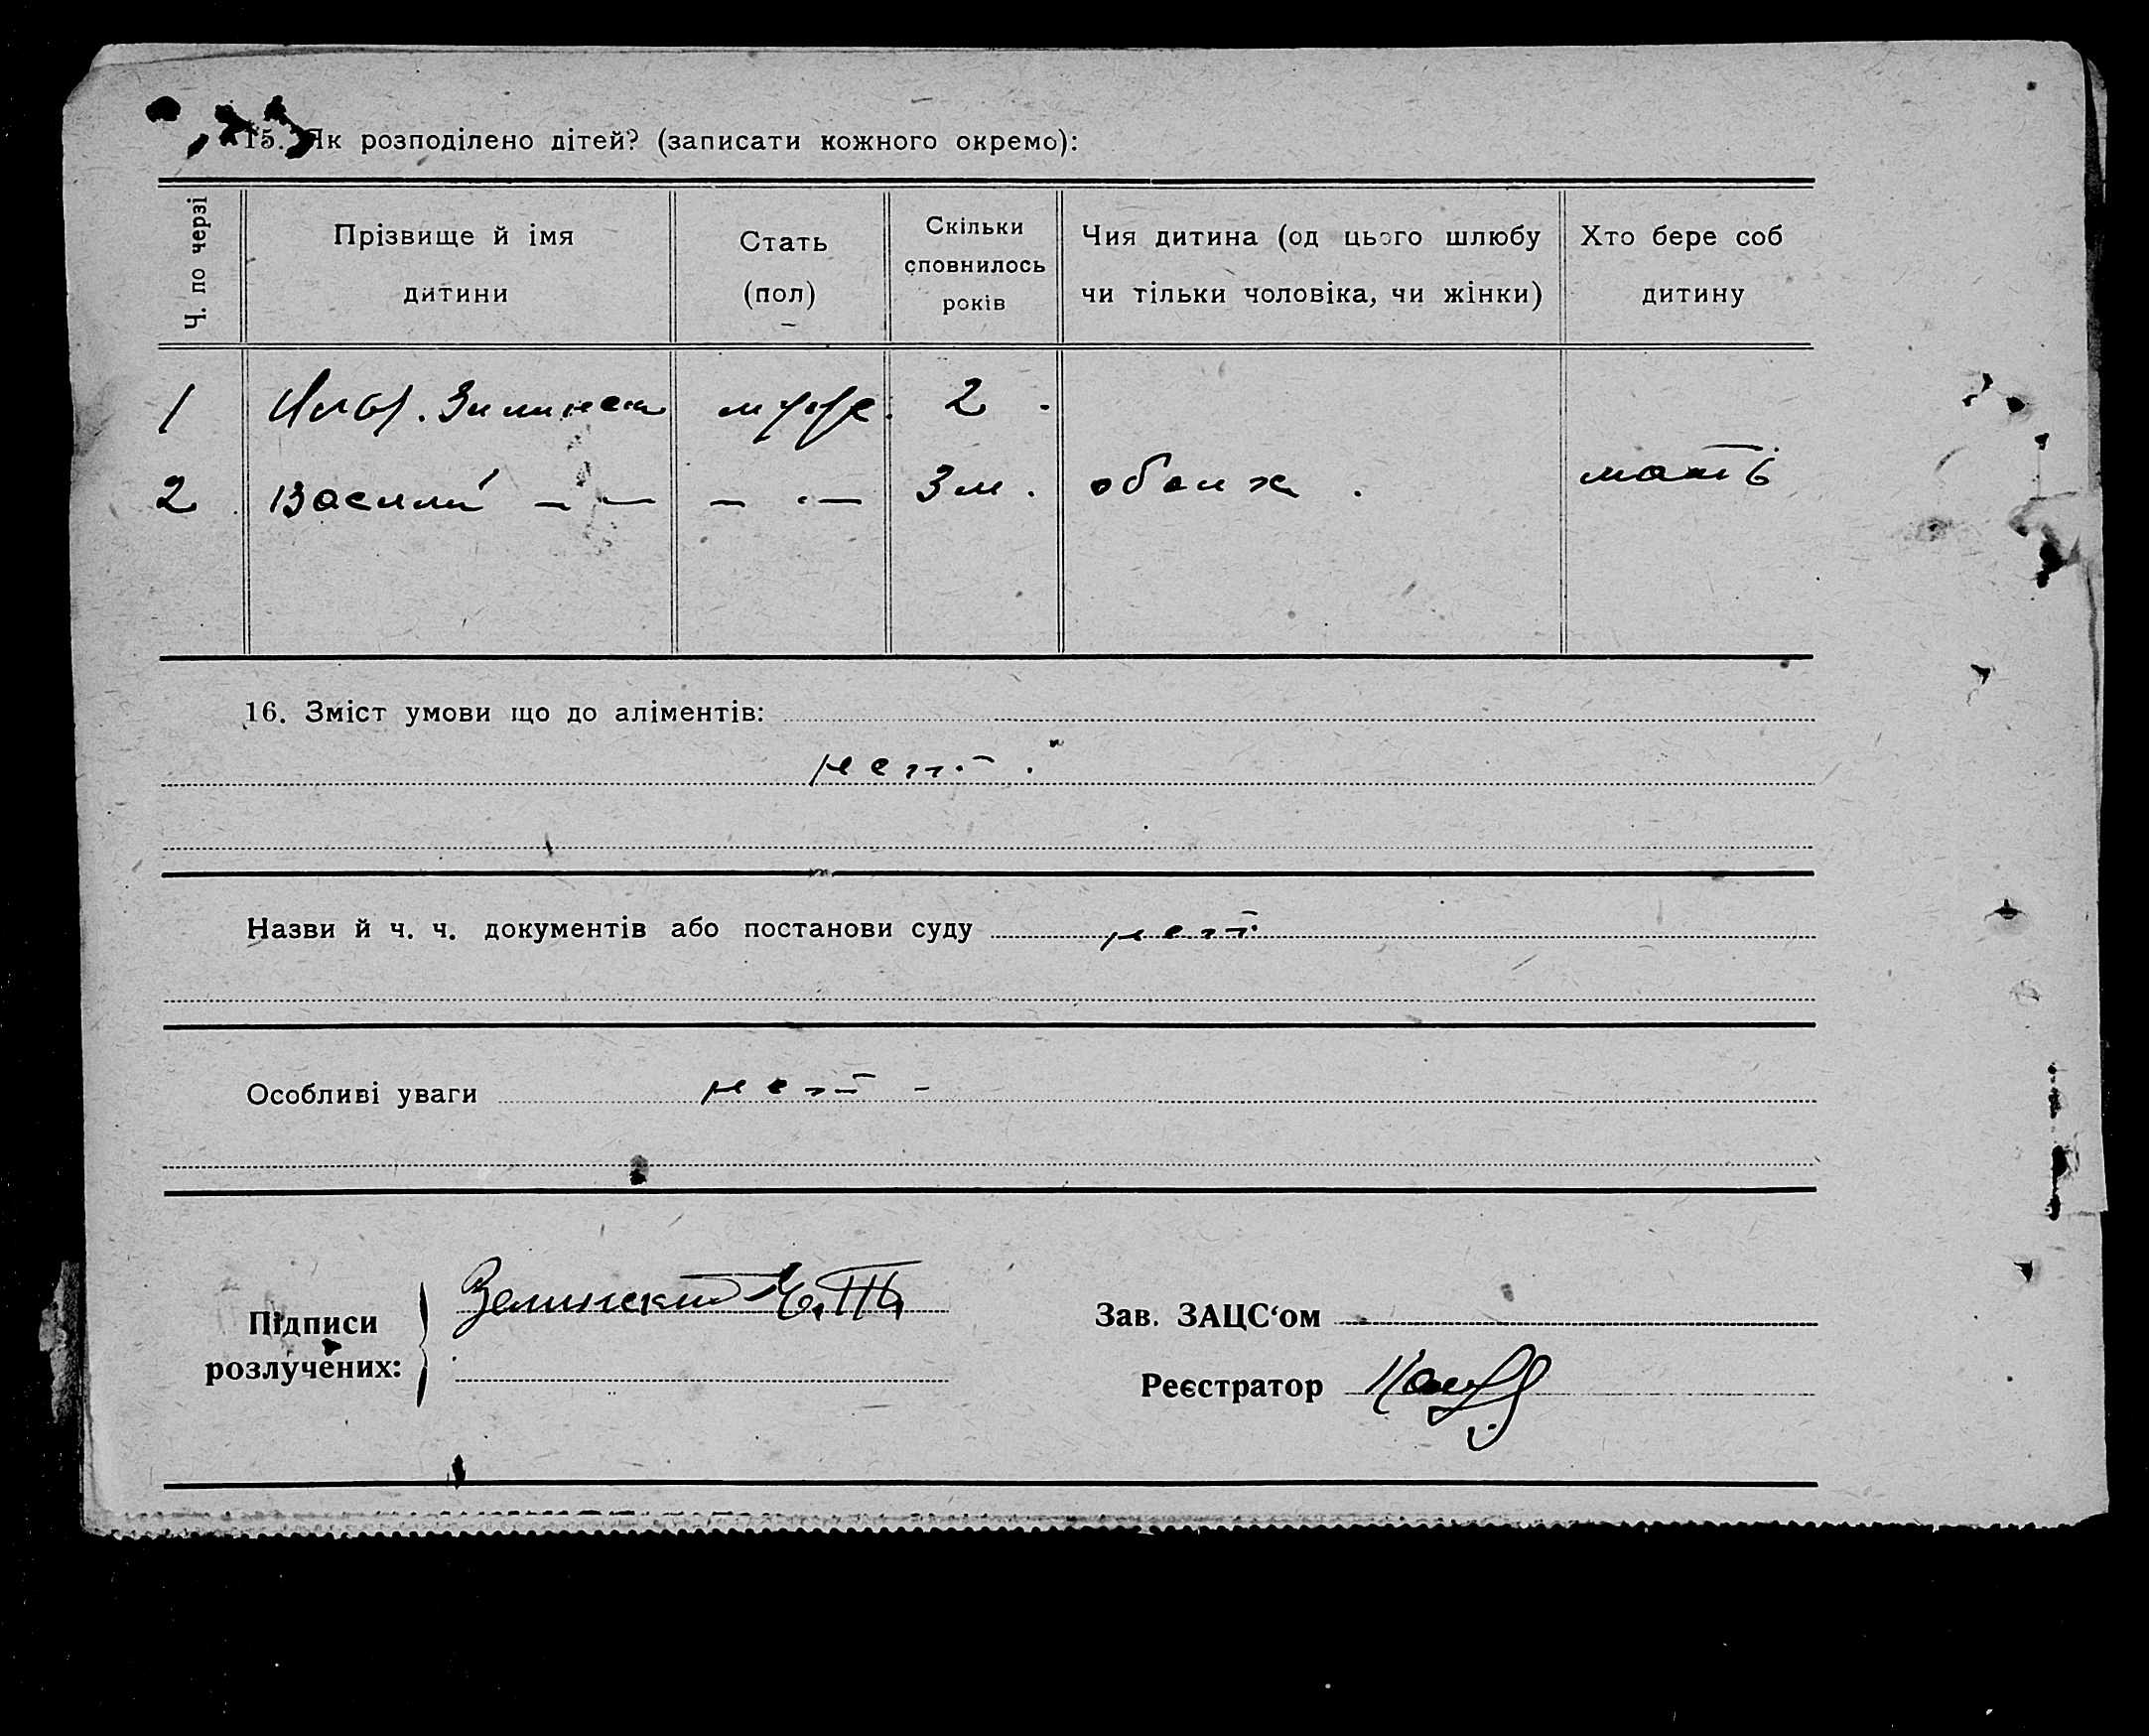 15. Як розподілено дітей? (записати кожного окремо):
Ч. по черзі
Прізвище й імя дитини
Стать (пол)
Скільки сповнилось років
Чия дитина (од цього шлюбу чи тільки чоловіка, чи жінки)
Хто бере соб дитину
1 2 .
2 Василий — — — — 3 м. обоих . мать
16. Зміст умови що до аліментів:
нет .
Назви й ч. ч. документів або постанови суду нет
Особливі уваги нет -
Підписи розлучених: Зелинский
Зав. ЗАЦС‘ом
Реєстратор